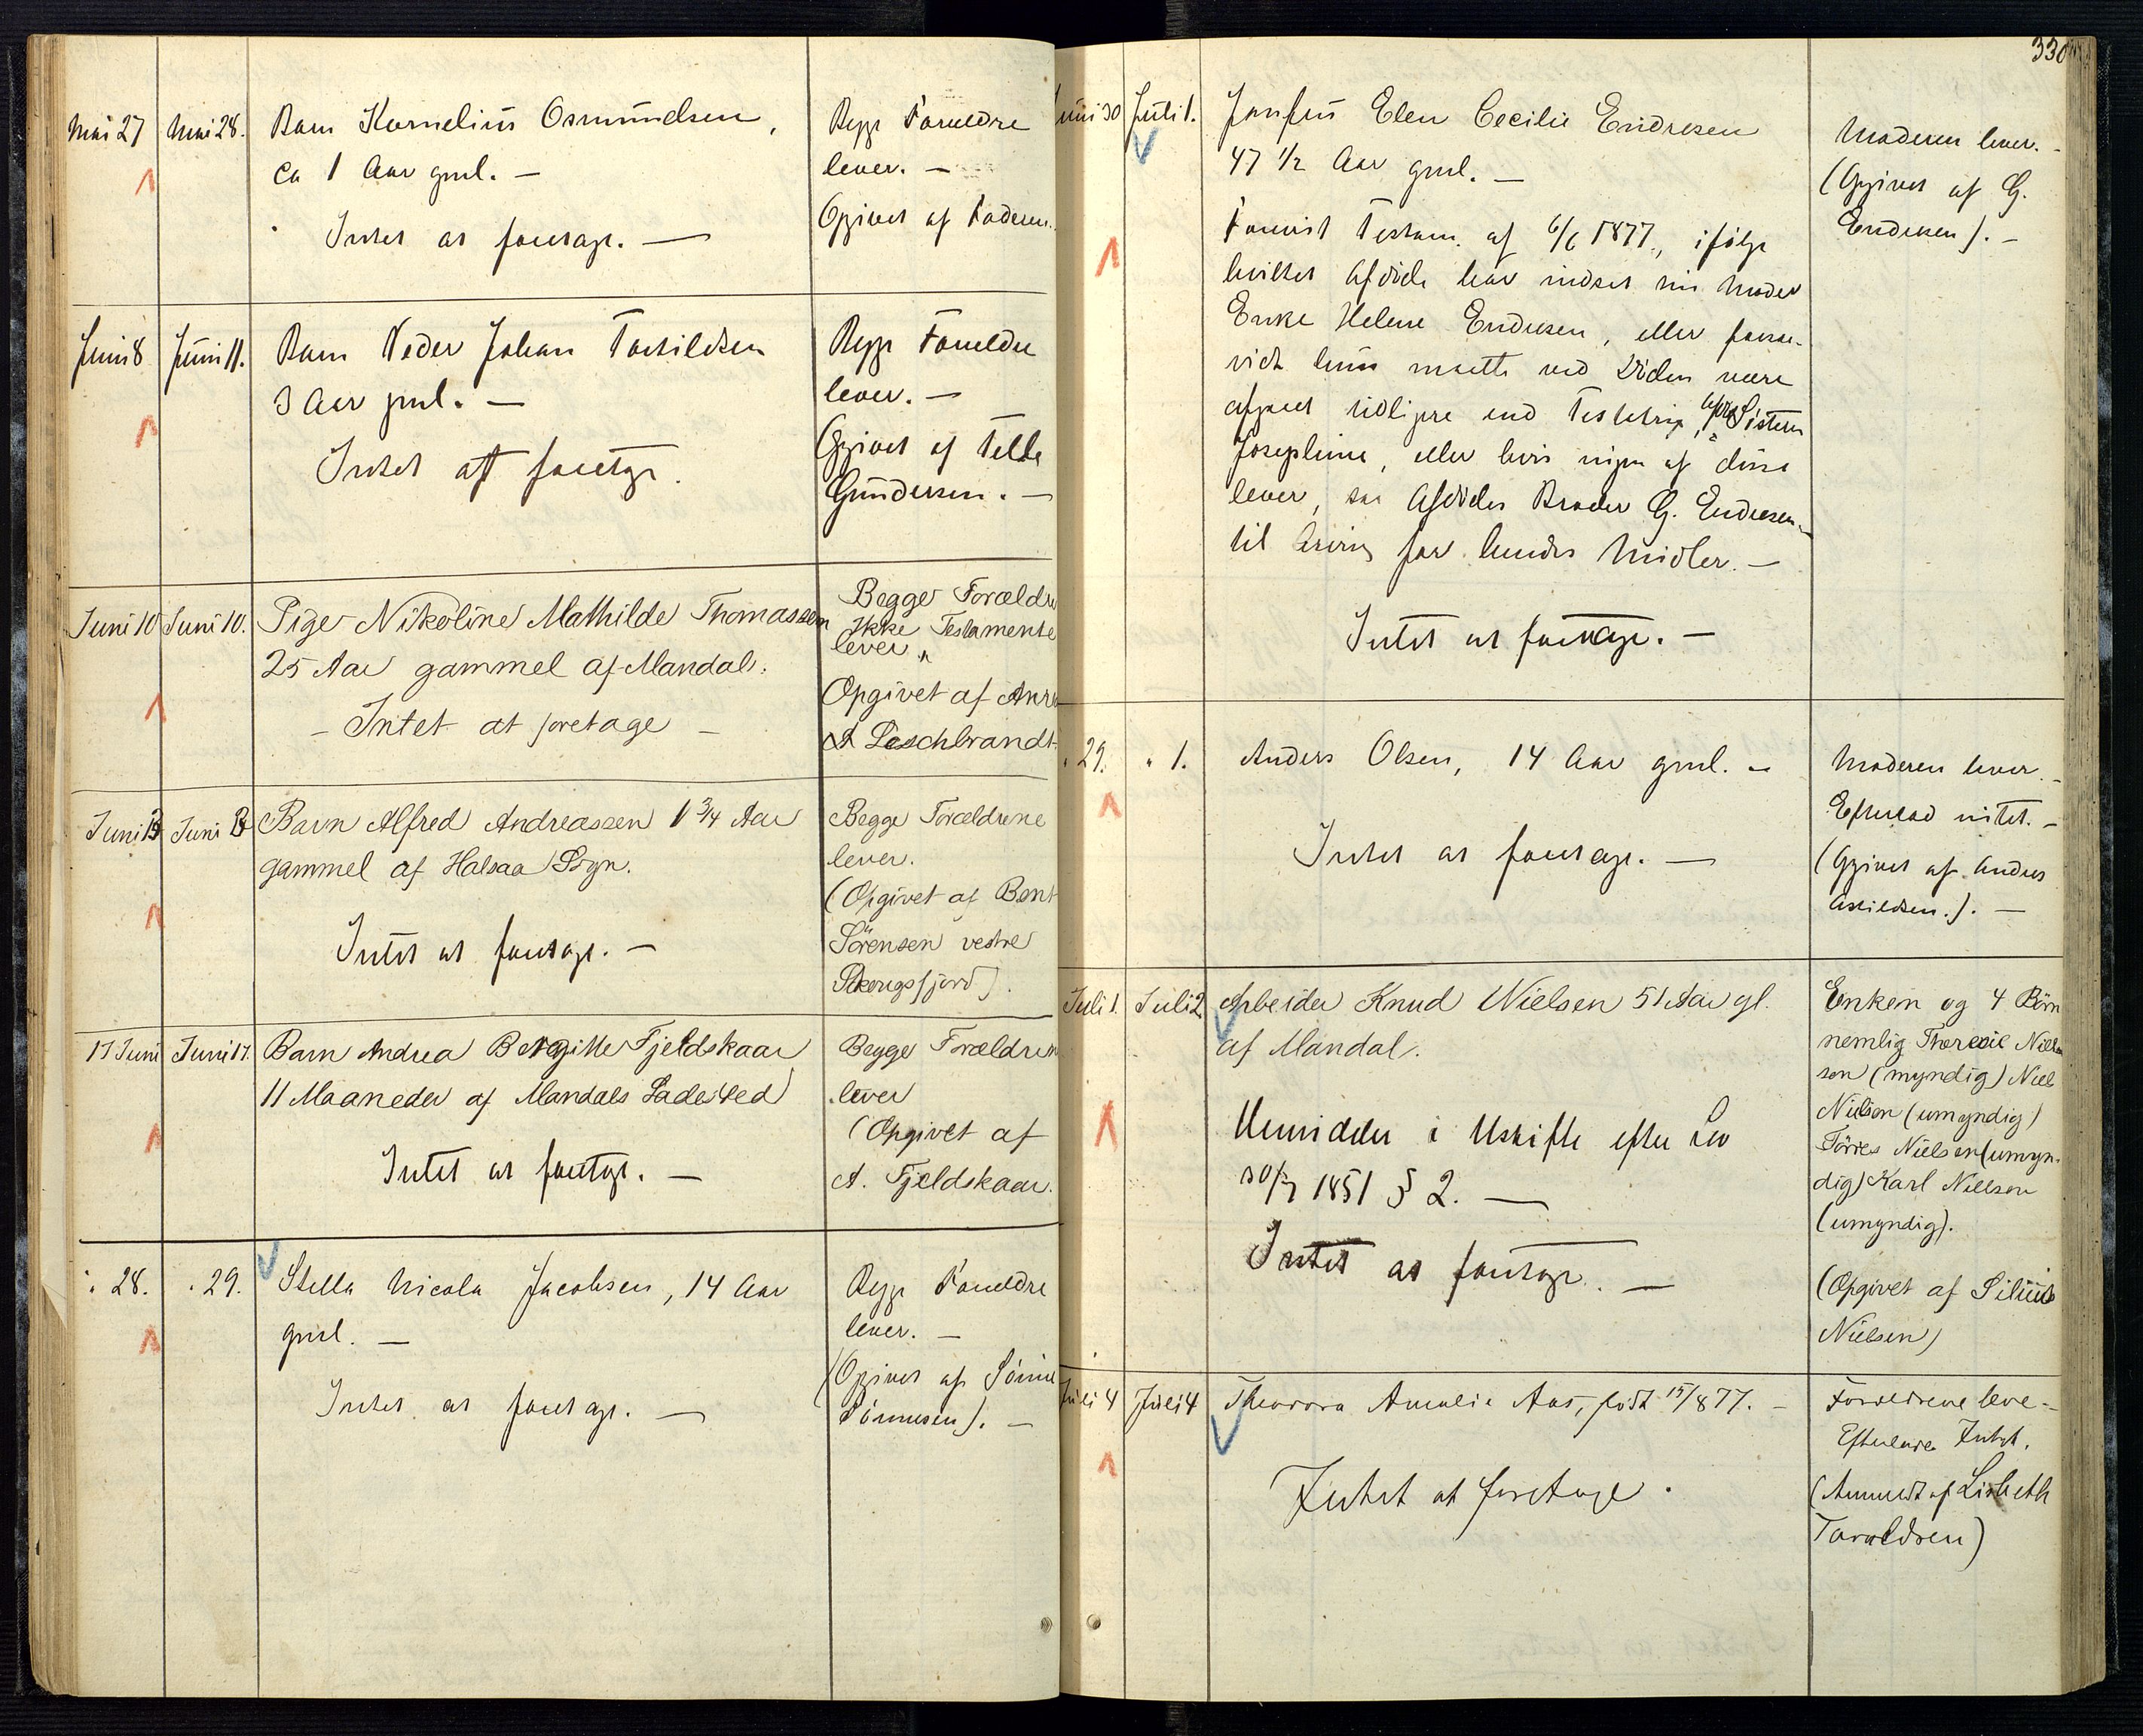 Mai 27
Mai 28.
Barn Kornelius Osmundsen,
ca 1 Aar gml. —
Intet at foretage. —
Begge Forældre
lever. —
Opgivet af Faderen.
Juni 8
Juni 11.
Barn Peder Johan Torkildsen
3 Aar gml. —
Intet at foretage.
Begge Forældre
lever. —
(Opgivet af
Gundersen. —
Juni 10
Juni 10.
Pige Nikoline Mathilde Thomassen
25 Aar gammel af Mandal.
– Intet at foretage –
Begge Forældre
Ikke Testamente
lever
Opgivet af
Leschbrandt
Juni 13
Juni 13
Barn Alfred Andreassen 1 3/4 Aar
gammel af Halsaa Sogn.
Intet at foretage. —
Begge Forældrene
lever.
(Opgivet af Bent
Sörensen vestre
Skeugsfjord).
17 Juni
Juni 17.
Barn Andrea Bergitte Fjeldskaar
11 Maaneder af Mandals Ladested
Intet at foretage. —
Begge Forældrene
lever
(Opgivet af
A. Fjeldskaar.
" 28.
" 29.
Stella Nicola Jacobsen, 14 Aar
gml. —
Intet at foretage. —
Begge Forældre
lever. —
(Opgivet af
Tönnesen). —
330
Juni 30
Juli 1.
Jomfru Elen Cecilie Endresen
47 1/2 Aar gml. —
Forevist Testam. af 6/6 1877, ifölge
hvilket Afdöde har indsat sin Moder
Enke Helene Endresen, eller forsaa-
vidt hun maatte ved Döden være
afgaaet tidligere end Testatrix, Sisteren
Josephine, eller hvis ingen af disse
lever, da Afdödes Broder G. Endresen
til Arving for hendes Midler. —
Intet at foretage. —
Moderen lever. –
(Opgivet af G.
Endresen). –
" 29.
" 1.
Anders Olsen, 14 Aar gml. –
Intet at foretage. —
Moderen lever. –
Efterlod intet. –
(Opgivet af Anders
Askildsen.). —
Juli 1.
Juli 2
Arbeider Knud Nielsen 51 Aar gl.
af Mandal.
Hensidder i Uskifte efter Lov
30/7 1851 § 2. —
Intet at foretage. —
Enken og 4 Börn
nemlig Theresie Niel
sen (myndig) Niels
Nielsen (umyndig)
Törres Nielsen (umyn-
dig) Karl Nielsen
(umyndig).
(Opgivet af Silius
Nielsen)
Juli 4
Juli 4
Theodora Amalie Aas, född 15/8 77. –
Intet at foretage.
Forældrene leve –
Efterlader Intet.
(Anmeldt af Lisbeth
Taraldsen)